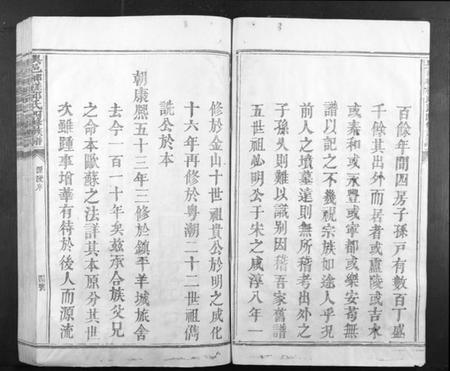 百餘年間四房子孫戸有數百丁盛
千餘其出外而居者或廬陵或吉水
或泰和或永豐或寧都或樂安苟無
譜以記之不幾視宗族如途人乎況
前人之墳墓遠則無所稽考出外之
子孫久則難以識别因稽吾家舊譜
五世祖必明公于宋之咸淳八年一
修於金山十世祖貴公於明之成化
十六年再修於粤潮二十二世祖儁
詵公於本
朝康熙五十三年三修於鎮平羊城旅舍
去今一百一十年矣兹承合族父兄
之命本歐蘇之法詳其本原分其世
次雖踵事增華有待於後人而源流